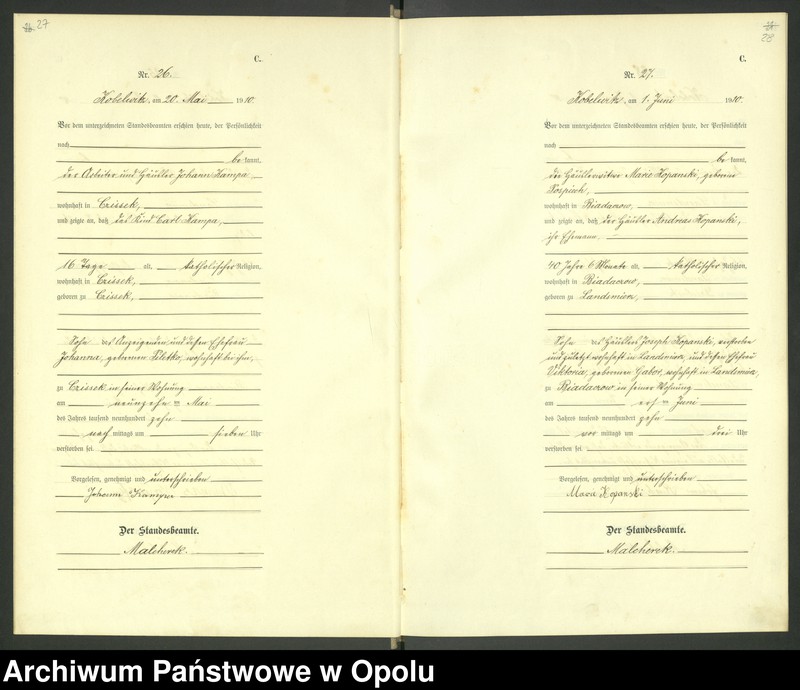 27
C.
Nr. 26.
Kobelwitz, am 20. Mai 1910.
Vor dem unterzeichneten Standesbeamten erschien heute, der Persönlichkeit
nach
be kannt,
der Arbeiter und Häusler Johann Kampa
wohnhaft in Czissek,
und zeigte an, daß das Kind Carl Kampa,
16 Tage alt, katholischer Religion,
wohnhaft in Czissek,
geboren zu Czissek,
Sohn des Anzeigenden und dessen Ehefrau
Johanna, geborenen wohnhaft bei ihm,
zu Czissek in seiner Wohnung
am neunzehn ten Mai
des Jahres tausend neunhundert zehn
nach mittags um sieben Uhr
verstorben sei.
Vorgelesen, genehmigt und unterschrieben
Johann Kampa
Der Standesbeamte.
Malcherek.
28
C.
Nr. 27.
Kobelwitz, am 1. Juni 1910.
Vor dem unterzeichneten Standesbeamten erschien heute, der Persönlichkeit
nach
be kannt,
die Häuslerwitwe Marie Kopanski, geborene
Pospiech,
wohnhaft in Biadaczow,
und zeigte an, daß der Häusler Andreas Kopanski,
ihr Ehemann
40 Jahre 6 Monate alt, katholischer Religion,
wohnhaft in Biadaczow,
geboren zu Landsmierz,
Sohn des Häuslers Joseph Kopanski, verstorben
und zuletzt wohnhaft in Landsmierz, und dessen Ehefrau
Viktoria, geborenen Gabor, wohnhaft in Landsmierz,
zu Biadaczow in seiner Wohnung
am ersten Juni
des Jahres tausend neunhundert zehn
vor mittags um drei Uhr
verstorben sei.
Vorgelesen, genehmigt und unterschrieben
Maria Kopanski
Der Standesbeamte.
Malcherek.
Archiwum Państwowe w Opolu